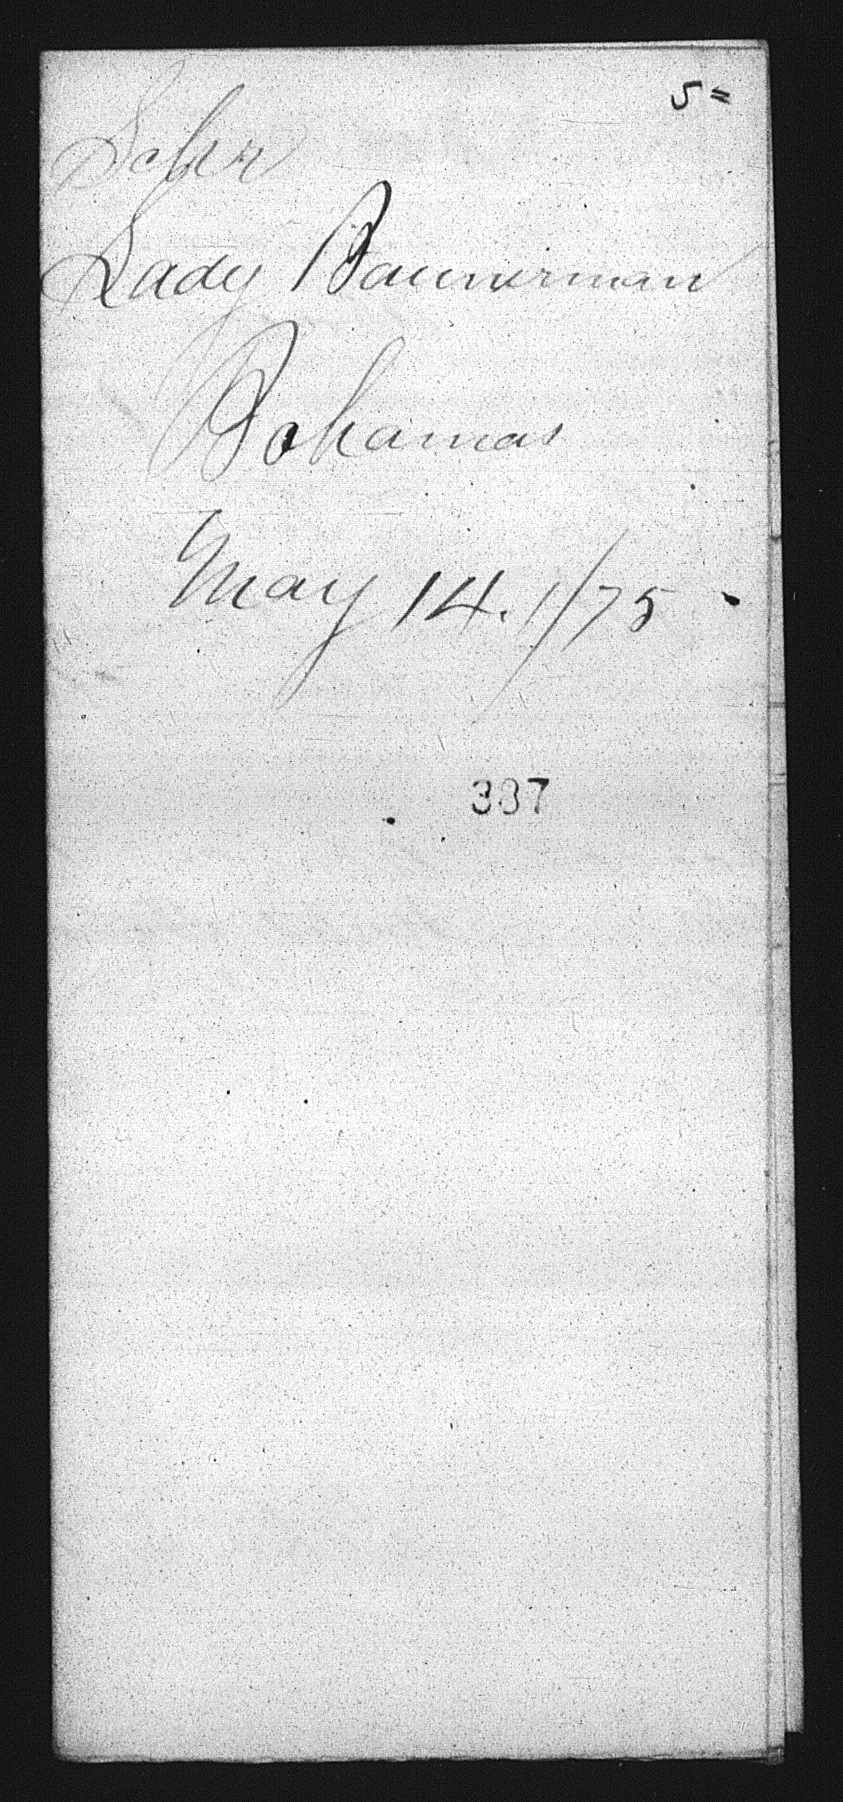 5=
Schr
Lady Bannerman
Bahamas
May 14. 1/75
387